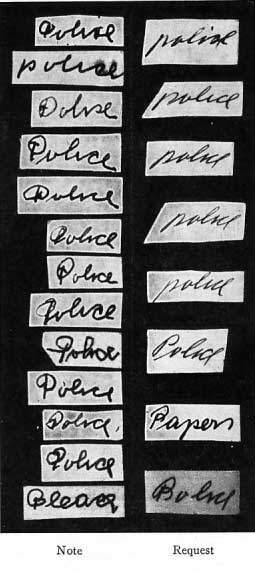 Police
police
Police
Police
Police
Police
Police
Police
Police
Police
Police.
Police
police
police
police
police
police
Police
Papers
Note Request